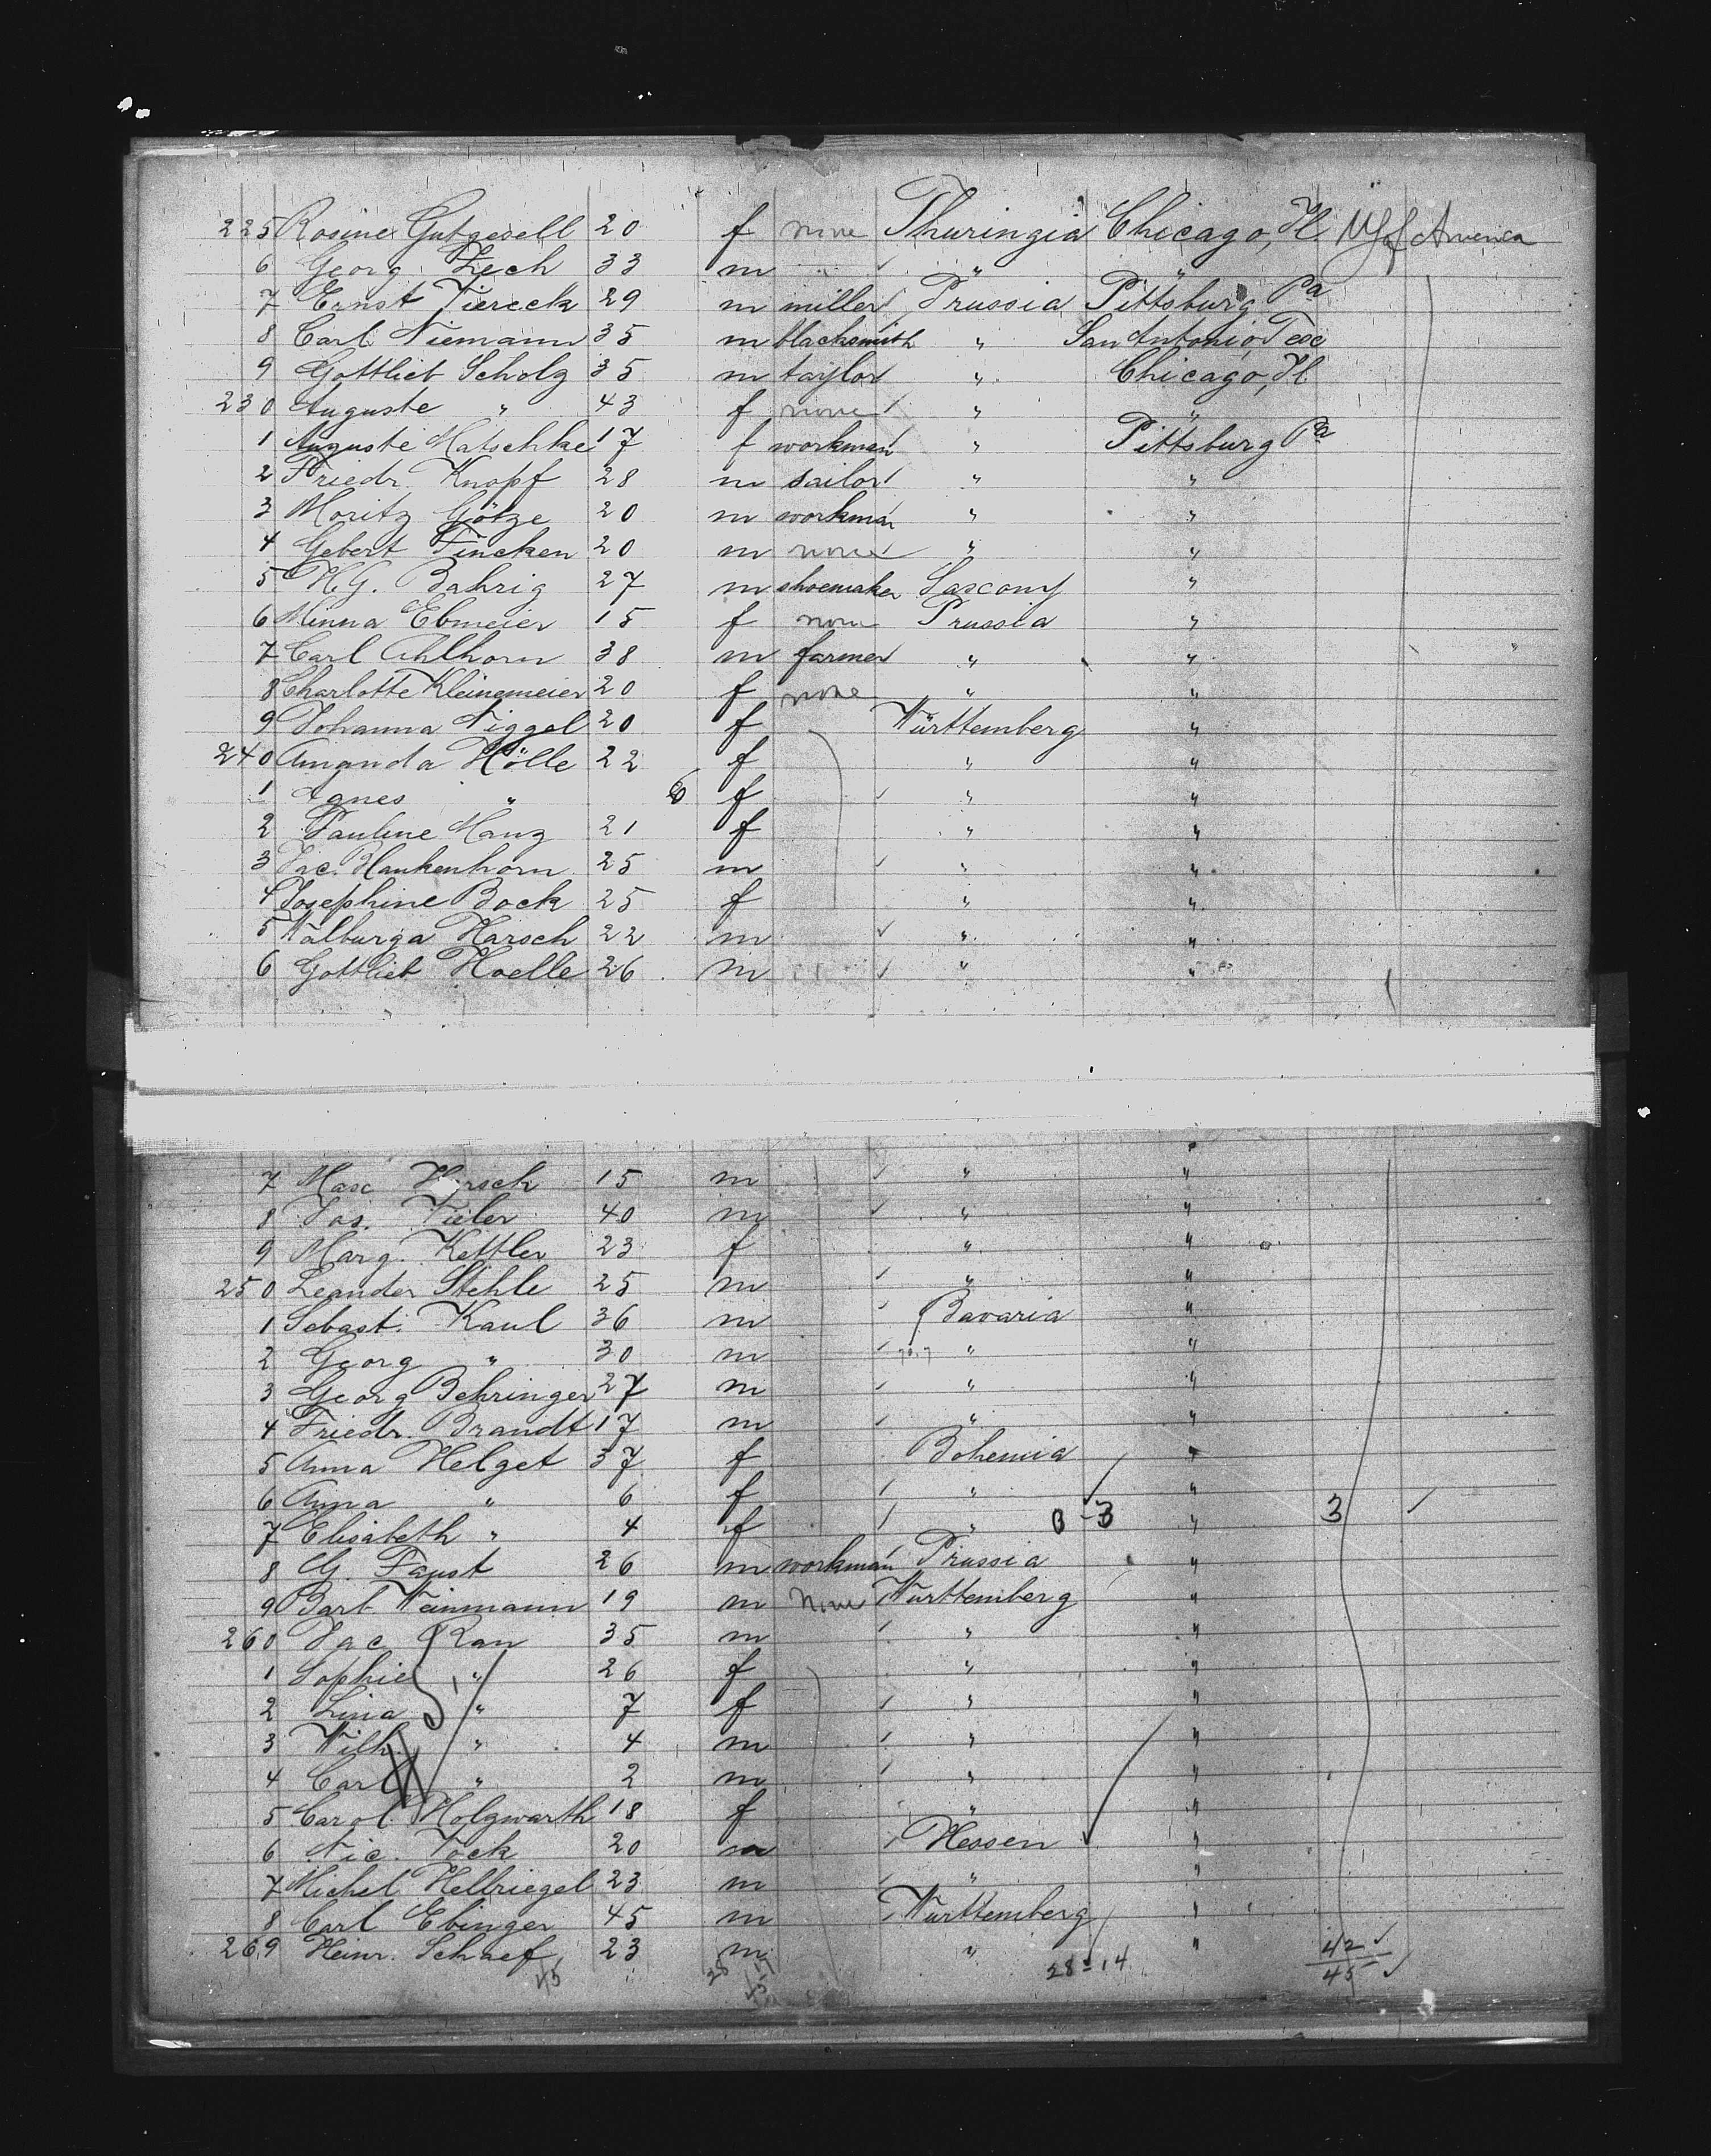 225 Rosine Gutgesell 20 f none Thuringia Chicago, Il. US of America
6 Georg Zech 33 m " " "
7 Ernst Viereck 29 m miller Prussia Pittsburg Pa
8 Carl Niemann 35 m blacksmith " San Antonio, Tex
9 Gottlieb Scholz 35 m taylor " Chicago, Il.
230 Auguste " 43 f none " "
1 Auguste Matschke 17 f workman " Pittsburg Pa
2 Friedr. Knopf 28 m sailor " "
3 Moritz Götze 20 m workman " "
4 Gebert Fincken 20 m none " "
5 H.G. Bahrig 27 m shoemaker Saxony "
6 Minna Ebmeier 15 f none Prussia "
7 Carl Ahlhorn 38 m farmer " "
8 Charlotte Kleinemeier 20 f none " "
9 Johanna Niggel 20 f Württemberg "
240 Amanda Hölle 22 f " "
1 Agnes " 6 f " "
2 Pauline Manz 21 f " "
3 Jac. Blankenhorn 25 m " "
4 Josephine Bock 25 f " "
5 Walburga Harsch 22 m " "
6 Gottlieb Hoelle 26 m " "
7 Max Harsch 15 m " "
8 Jos. 40 m " "
9 Marg. Kettler 23 f " "
250 Leander Stehle 25 m " "
1 Sebast. Kaul 36 m Bavaria "
2 Georg " 30 m " "
3 Georg Behringer 27 m " "
4 Friedr. Brandt 17 m " "
5 Anna Helget 37 f Bohemia "
6 Anna " 6 f " "
7 Elisabeth " 4 f " 3 " 3
8 G. Faust 26 m workman Prussia "
9 Barb. Weinmann 19 m none Württemberg "
260 Jac. Rau 35 m " "
1 Sophie " 26 f " "
2 Lina " 7 f " "
3 Wilh. " 4 m " "
4 Carl " 2 m " "
5 Carol. Holzwarth 18 f " "
6 Nic. Vock 20 m Hessen "
7 Michel Helbriegel 23 m " "
8 Carl Ebinger 45 m Württemberg "
269 Heinr. Schaef 23 m " "
45 28 28-14 42
45